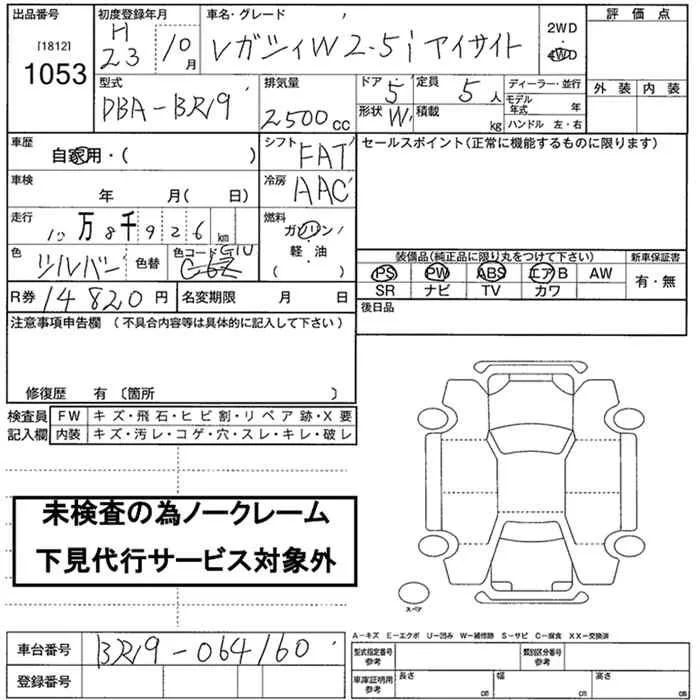 出品番号 初度登録年月 車名・グレード 評価点
[1812] 1053 H23 10月 Vガシィ W 2.5i アイサイト 2WD・4WD
外装 内装
型式 排気量 ドア・形状 定員 ディーラー・並行
DBA-BR9 2500cc 5 W 5人 モデル年式 年
積載 kg ハンドル 左・右
車歴 シフト セールスポイント(正常に機能するものに限ります)
自家用・( ) FAT
車検 冷房
年 月( 日) AAC
走行 燃料
10万8千926km ガソリン
軽・油
( )
色 色替 色コード 装備品(純正品に限り丸をつけて下さい) 新車保証書
シルバー G1U PS PW ABS エアB AW 有・無
SR ナビ TV カワ
R券 14820円 名変期限 月 日 後日品
注意事項申告欄(不具合内容等は具体的に記入して下さい)
修復歴 有 〔箇所 〕
検査員 FW キズ・飛石・ヒビ割・リペア跡・X要
記入欄 内装 キズ・汚レ・コゲ・穴・スレ・キレ・破レ
未検査の為ノークレーム
下見代行サービス対象外
スペア
A-キズ E-エクボ U-凹み W-補修跡 S-サビ C-腐食 XX-交換済
車台番号 BR9-064160 型式指定番号 参考 類別区分番号 参考
登録番号 車庫証明用 参考 長さ cm 幅 cm 高さ cm